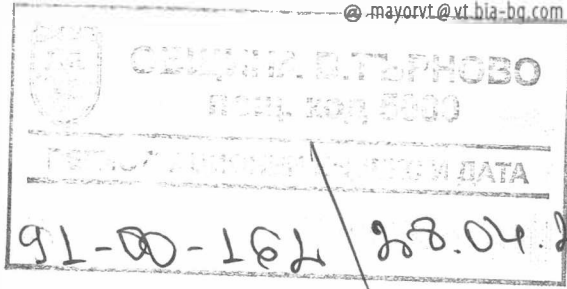 @ mayorvt@vt.bia-bg.com
ОБЩИНА В.ТЪРНОВО
ПОЩ. КОД 5000
И ДАТА
91-00-162 28.04.2